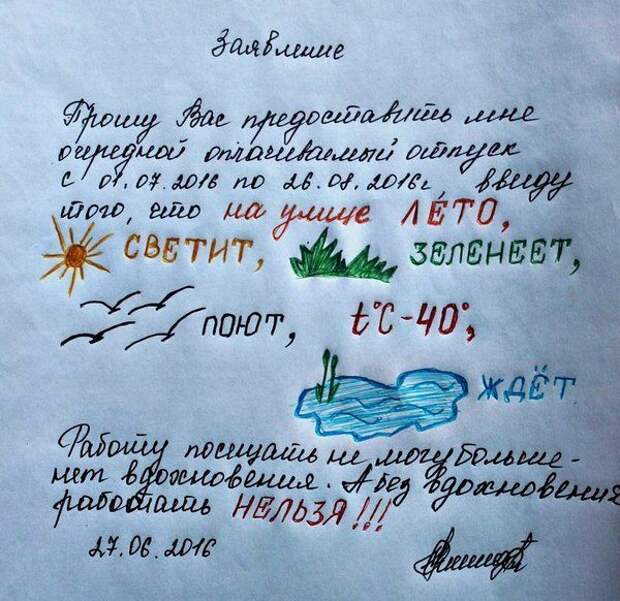 Заявление
Прошу Вас предоставить мне
очередной оплачиваемый отпуск
с 01.07.2016 по 26.08.2016г ввиду
того, что на улице ЛЕ́ТО,
СВЕТИТ, ЗЕЛЕНЕЕТ,
ПОЮТ, t°C-40°,
ЖДЁТ.
Работу посещать не могу больше-
нет вдохновения. А без вдохновения
работать НЕЛЬЗЯ!!!
27.06.2016